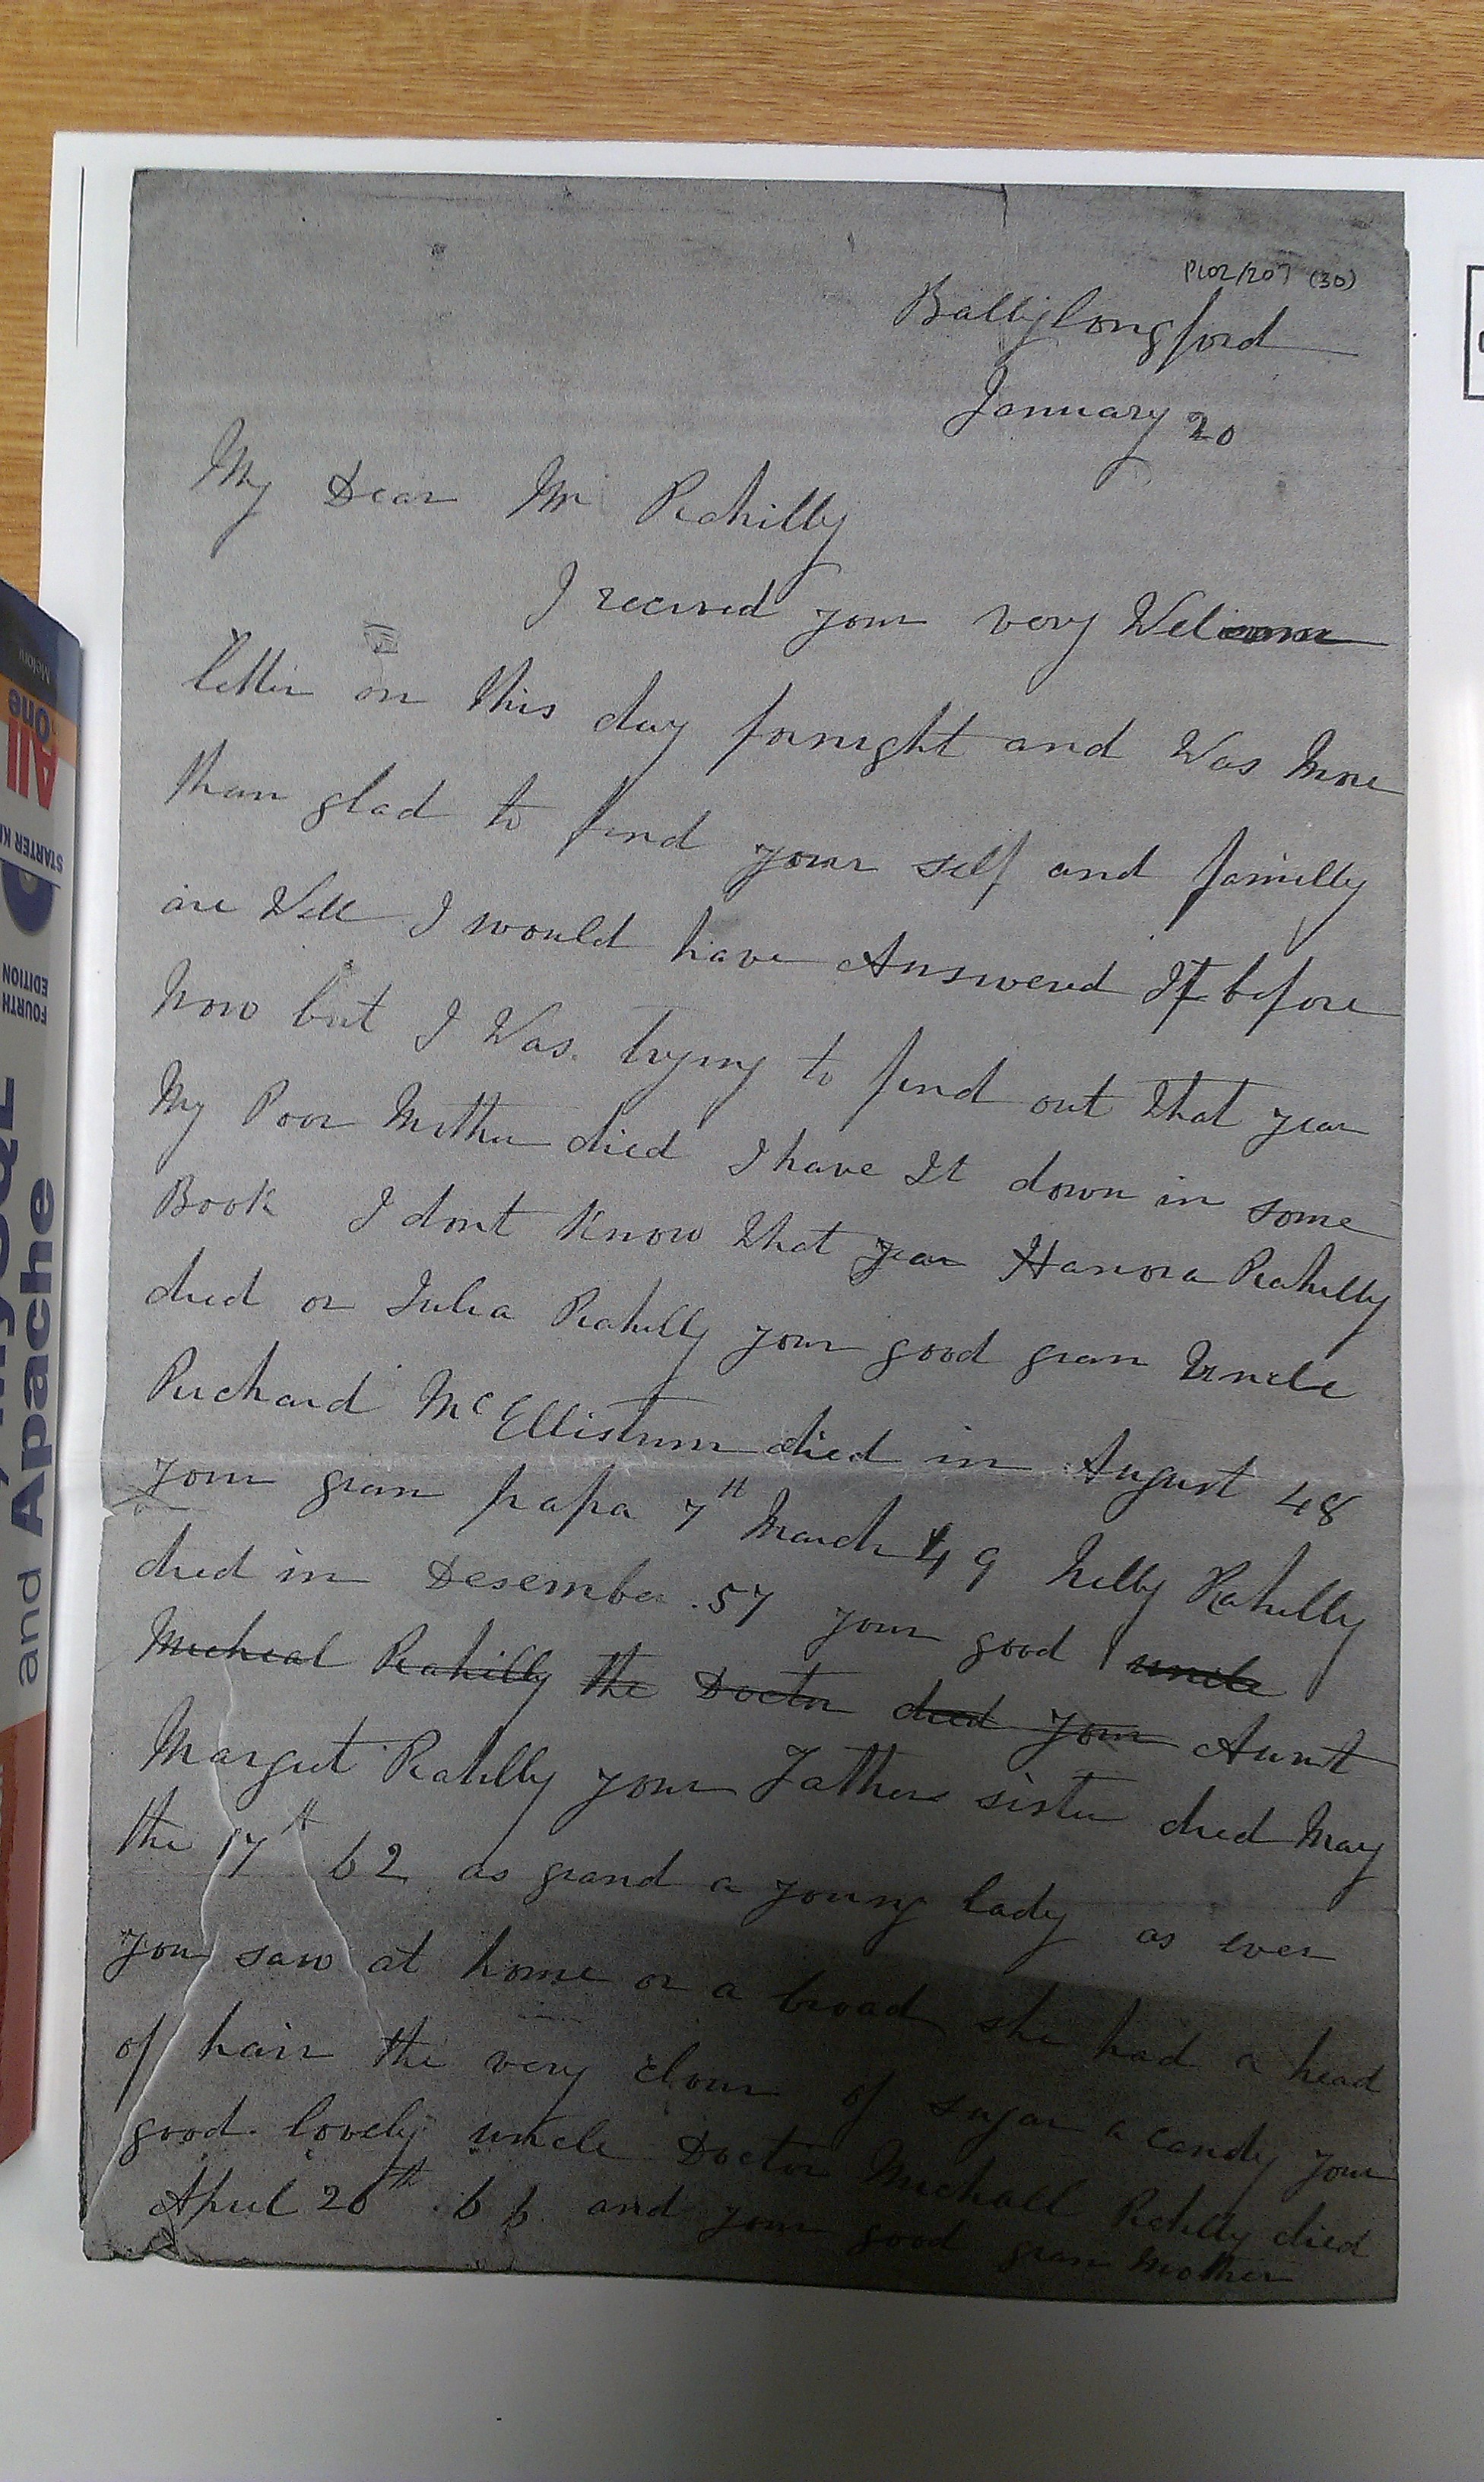 P102/207 (30)
Ballylongford
January 20
My Dear Mr Rahilly
I recived your very Welcome
letter on this day fornight and Was More
than glad to find your self and familly
are Well I would have Answered It before
Now but I Was trying to find out What year
My Poor Mother died I have It down in some
Book I dont Know What year Hanora Rahilly
died or Julia Rahilly your good gran Uncle
Richard McEllistrum died in August 48
your gran papa 7th March 49 Nelly Rahilly
died in Desember 57 your good uncle
Micheal Rahilly the Doctor died your Aunt
Margret Rahilly your Fathers sister died May
the 17th 62 as grand a young lady as ever
you saw at home or a broad she had a head
of hair the very clour of sugar a candy your
good lovely uncle Doctor Michall Rahilly died
April 26th 66 and your good gran Mother
Meloni
All
One
STARTER KI
FOURTH
EDITION
and Apache